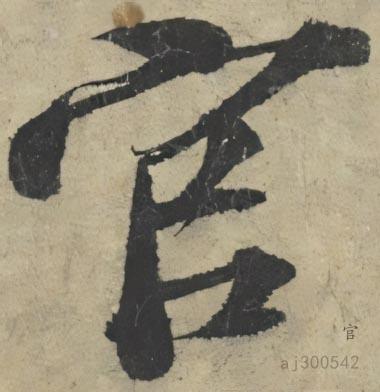 官
官
aj300542